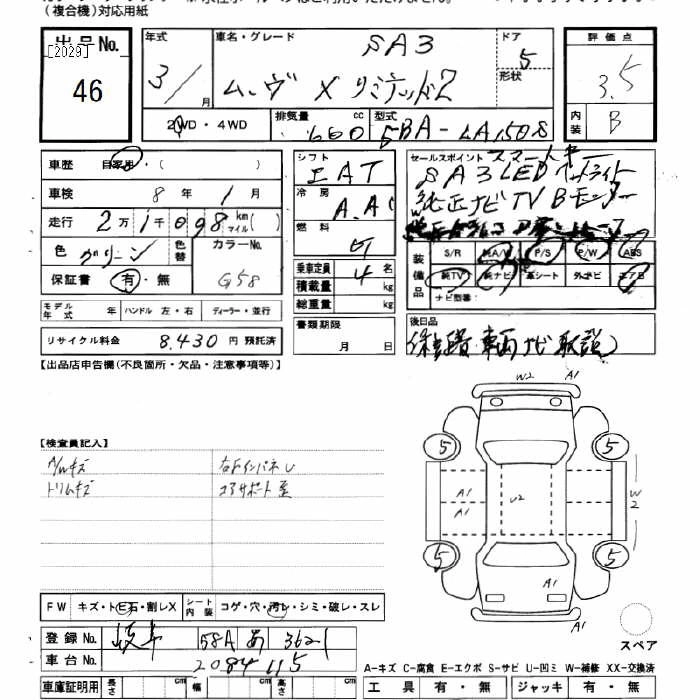 (複合機)対応用紙
出品No.
[2029]
46
年式
3/月
車名・グレード
SA3
ムーヴ X リミテッド2
ドア
5
形状
評価点
3.5
内装
B
2WD・4WD
排気量
660 cc
型式
5BA-LA150S
車歴
自家用・( )
車検
8年1月
走行
2万1千098 km マイル( )
色
グリーン
色替
カラーNo.
G58
保証書
有・無
シフト
IAT
冷房
A.AC
燃料
乗車定員
4名
積載量
kg
総重量
kg
セールスポイント
スマートキー
SA3 LED
純正ナビTV Bモニター
装備品
S/R
純A/W
P/S
P/W
ABS
純TV
純ナビ
革シート
外ナビ
エアB
ナビ型番:
モデル年式
年
ハンドル 左・右
ディーラー・並行
リサイクル料金
8,430円 預託済
書類期限
月 日
後日品
車両ナビ取説
【出品店申告欄(不良箇所・欠品・注意事項等)】
【検査員記入】
A/Wキズ
右Fインパネ U
トリムキズ
コアサポート
W2
A1
5
5
A1
A1
U2
W2
5
5
A1
A1
スペア
FW
キズ・トビ石・割レX
シート内装
コゲ・穴・汚レ・シミ・破レ・スレ
登録No.
岐阜
58A
あ
3621
車台No.
2084115
A−キズ C−腐食 E−エクボ S−サビ U−凹ミ W−補修 XX−交換済
車庫証明用
長さ
cm
幅
cm
高さ
cm
工具 有・無
ジャッキ 有・無